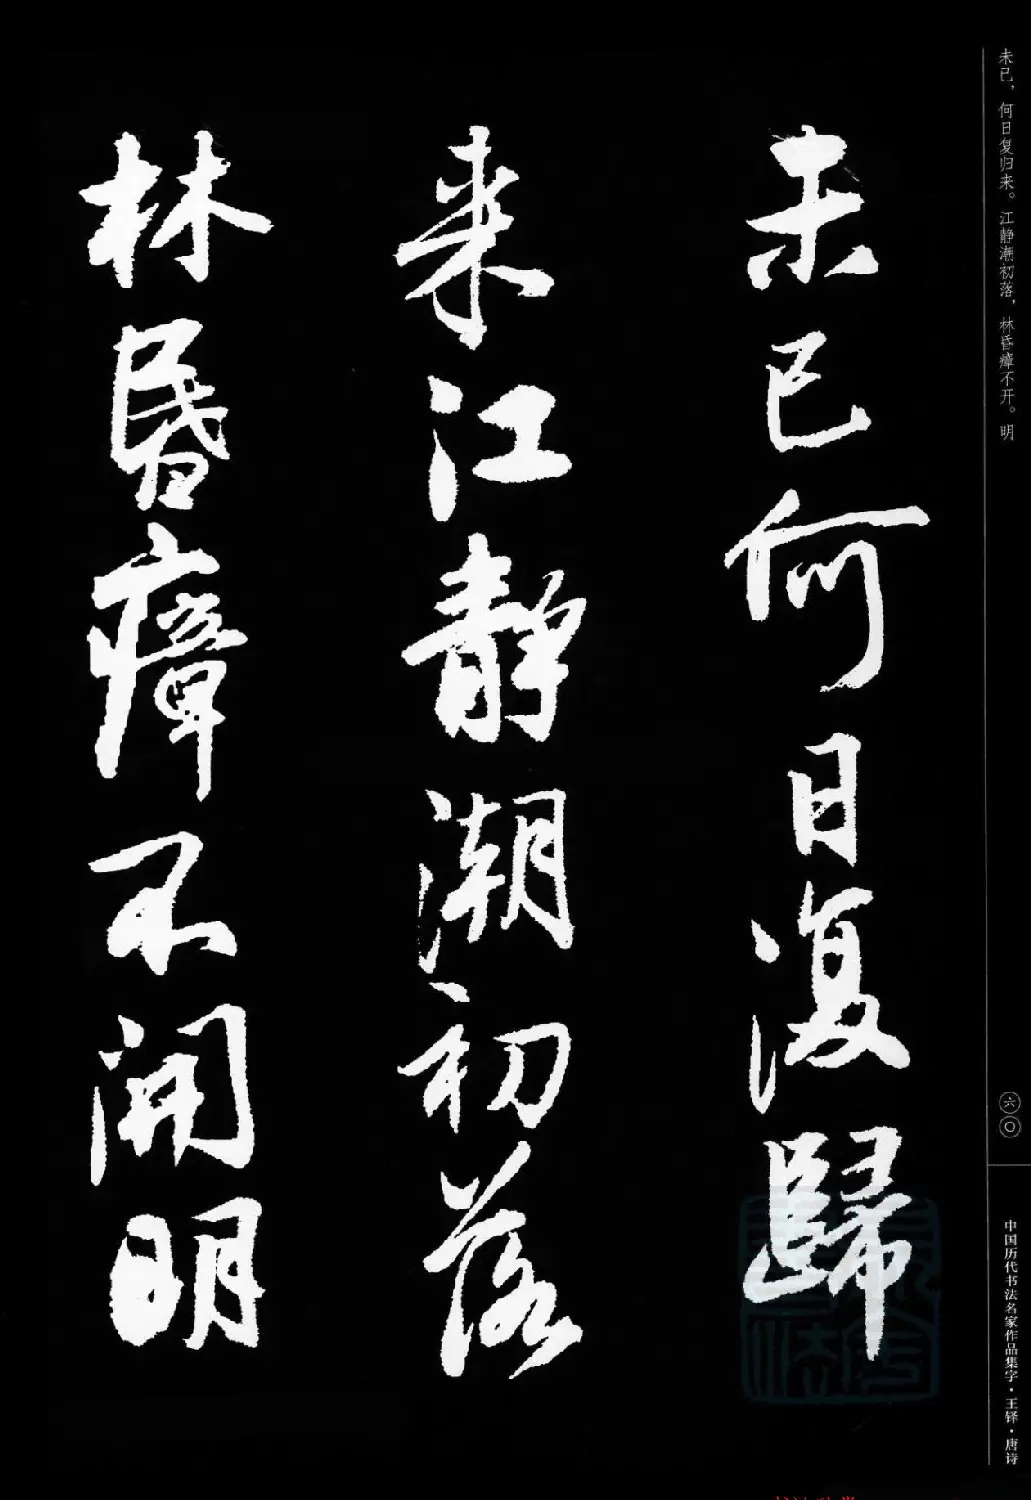 未已，何日复归来。江静潮初落，林昏瘴不开。明
六〇
中国历代书法名家作品集字·王铎·唐诗
未已何日復歸
来江静潮初落
林昬瘴不開明